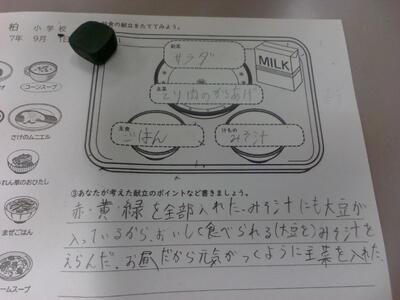 柏 小学校
食の献立をたててみよう。
7年 9月
コーンスープ
さけのムニエル
れん草のおひたし
まぜごはん
ームスープ
副菜
サラダ
MILK
主菜
とり肉のからあげ
主食
ごはん
汁もの
みそ汁
③あなたが考えた献立のポイントなど書きましょう。
赤・黄・緑を全部入れた。みそ汁にも大豆が
入っているから、おいしく食べられる(大豆を)みそ汁を
えらんだ。お昼だから元気がつくように主菜を入れた。